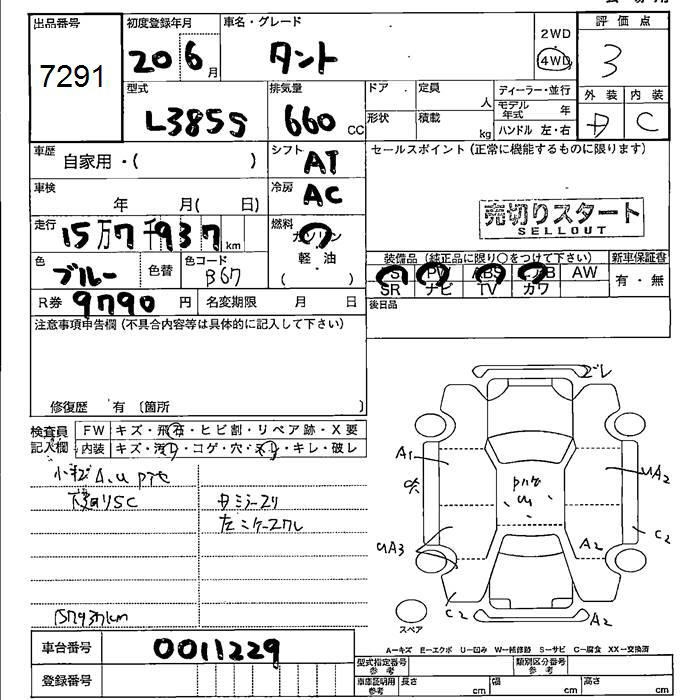 出品番号 初度登録年月 車名・グレード 2WD 評価点
7291 20 6月 タント 4WD 3
型式 排気量 ドア 定員 人 ディーラー・並行 外装 内装
L385S 660 CC 形状 積載 kg モデル年式 年 D C
ハンドル 左・右
車歴 自家用・( ) シフト AT セールスポイント(正常に機能するものに限ります)
車検 年 月( 日) 冷房 AC
売切りスタート
SELLOUT
走行 15万7千937km 燃料 ガソリン
軽・油
( )
装備品(純正品に限り○をつけて下さい) 新車保証書
色 ブルー 色替 色コード B67
PS PW ABS エアB AW 有・無
SR ナビ TV カワ
R券 9790円 名変期限 月 日 後日品
注意事項申告欄(不具合内容等は具体的に記入して下さい)
修復歴 有 〔箇所 〕
検査員記入欄 FW キズ・飛石・ヒビ割・リペア跡・X要
内装 キズ・汚れ・コゲ・穴・スレ・キレ・破レ
小キズ A.U
SC
ミラースリ
左
157937km
A1
UA3
C2
UA2
C2
A2
A2
スペア
車台番号 0011229
A−キズ E−エクボ U−凹み W−補修跡 S−サビ C−腐食 XX−交換済
登録番号
型式指定番号 参考 類別区分番号 参考
車庫証明用 参考 長さ cm 幅 cm 高さ cm